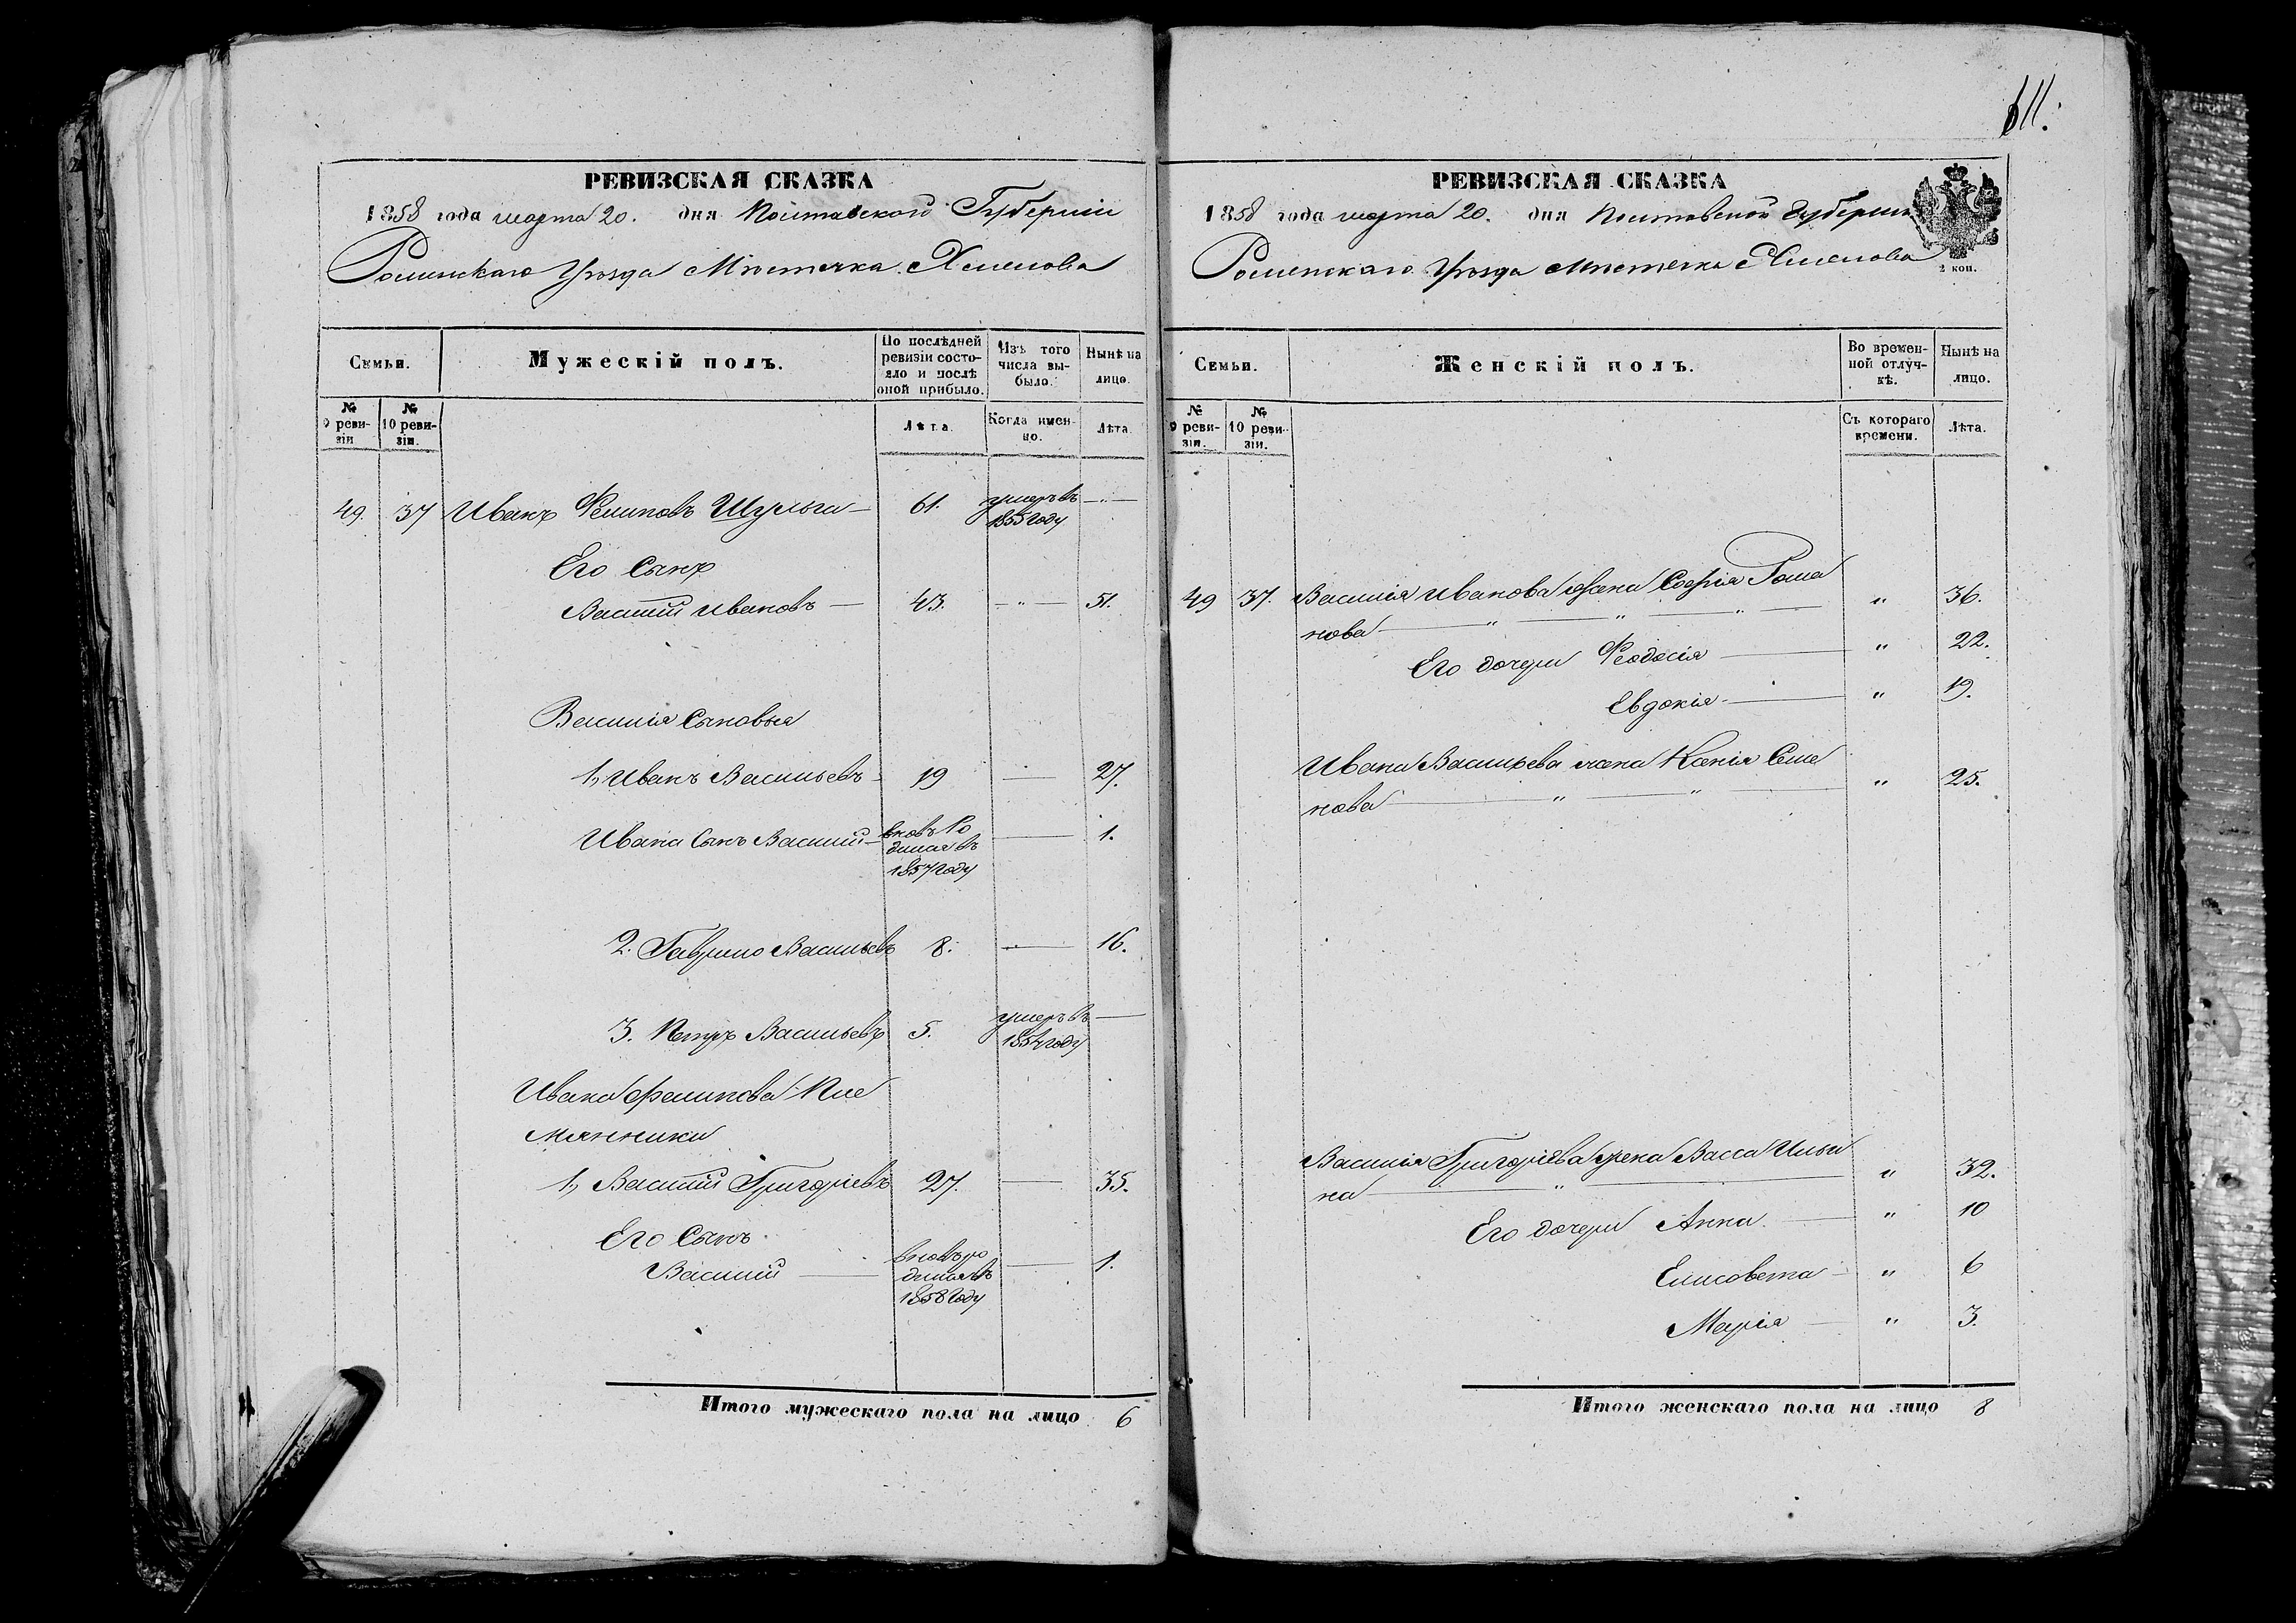 611.
РЕВИЗСКАЯ СКАЗКА
1858 года марта 20. дня Полтавской Губерніи
Роменскаго Уѣзда Мѣстечка Хмелова
Семьи.
Мужескій полъ.
По послѣдней ревизіи состояло и послѣ оной прибыло.
Изъ того числа выбыло.
Нынѣ на лицо.
№ 9 ревизіи
№ 10 ревизіи.
Лѣта.
Когда именно.
Лѣта.
49. 37 Иванъ Филиповъ Шульга — 61. умеръ въ 1855 году — „ —
Его Сынъ
Василій Ивановъ — 43. — „ — 51.
Василія Сыновья
1, Иванъ Васильевъ 19 — 27.
Ивана Сынъ Василій — вновь родился въ 1857 году — 1.
2. Гаврило Васильевъ 8. — 16.
3. Петръ Васильевъ 5. умеръ въ 1854 году —
Ивана Филипова Пле
мянники
1, Василій Григоріевъ 27. — 35.
Его Сынъ
Василій — вновь родился въ 1858 году — 1.
Итого мужескаго пола на лицо 6
РЕВИЗСКАЯ СКАЗКА
1858 года марта 20. дня Полтавской Губерніи
Роменскаго Уѣзда Мѣстечка Хмелова
2 коп.
Семьи.
Женскій полъ.
Во временной отлучкѣ.
Нынѣ на лицо.
№ 9 ревизіи.
№ 10 ревизіи.
Съ котораго времени.
Лѣта.
49 37. Василія Иванова жена Софія Рома
нова — „ — „ — „ — „ 36.
Его дочери Феодосія — „ 22.
Евдокія — „ 19.
Ивана Васильева жена Ксенія Семе
нова — „ — „ — „ 25.
Василія Григоріева жена Васса Ильи
на — „ — „ 32.
Его дочери Анна — „ 10
Елисовета — „ 6
Марія — „ 3.
Итого женскаго пола на лицо 8